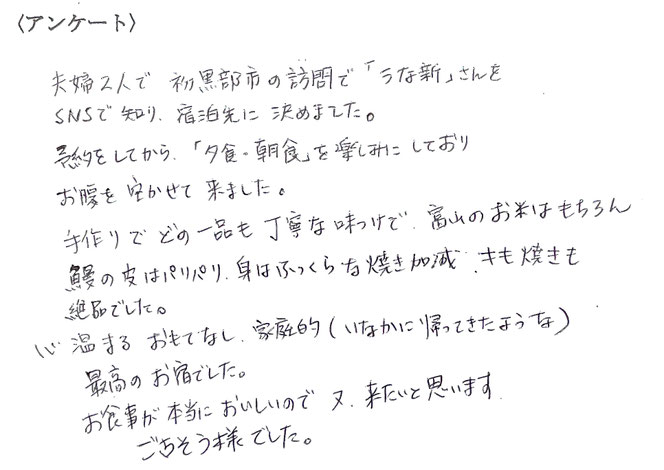 〈アンケート〉
夫婦2人で 初黒部市の訪問で「うな新」さんを
SNSで知り、宿泊先に 決めました。
予約をしてから、「夕食・朝食」を楽しみに しており
お腹を 空かせて 来ました。
手作りで どの一品も 丁寧な味つけで、富山のお米はもちろん
鰻の皮はパリパリ、身はふっくらな焼き加減、キモ焼きも
絶品でした。
心 温まる おもてなし、家庭的(いなかに帰ってきたような)
最高の お宿でした。
お食事が 本当に おいしいので 又、来たいと思います。
ごちそう様でした。